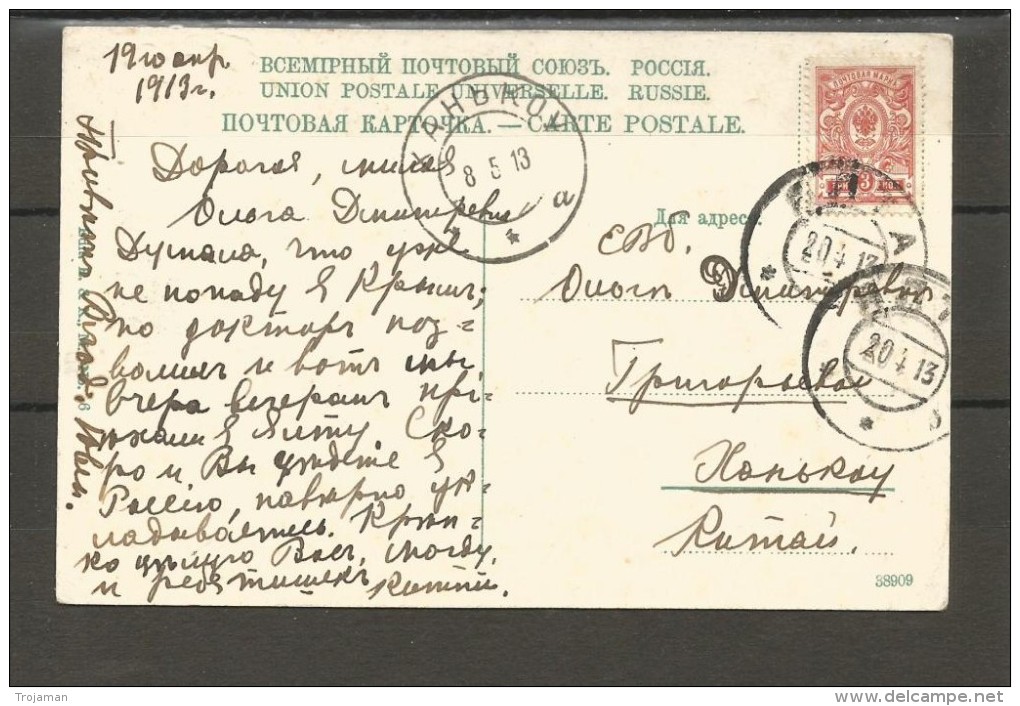 19го апр
1913 г.
ВСЕМІРНЫЙ ПОЧТОВЫЙ СОЮЗЪ. РОССІЯ.
UNION POSTALE UNIVERSELLE. RUSSIE.
ПОЧТОВАЯ КАРТОЧКА. — CARTE POSTALE.
ХАНЬКОУ
8 5 13
а
ПОЧТОВАЯ МАРКА
ТРИ 3 КОП.
ЯЛТА
20 4 13
ЯЛТА
20 4 13
Дорогая, милая
Ольга Дмитревна
Думала, что уже
не попаду въ Крымъ,
но докторъ поз=
волилъ и вотъ мы
вчера вечеромъ прі-
ѣхали въ Ялту. Ско-
ро и Вы уѣдете въ
Россію, навѣрно ук-
ладываетесь. Крѣп-
ко цѣлую Васъ,
и ребятишекъ Китти.
Для адреса
ЕВБ.
Ольгѣ Дмитревнѣ
Григорьевой
Ханькоу
Китай.
Привѣтъ
38909
Trojaman
delcampe.net